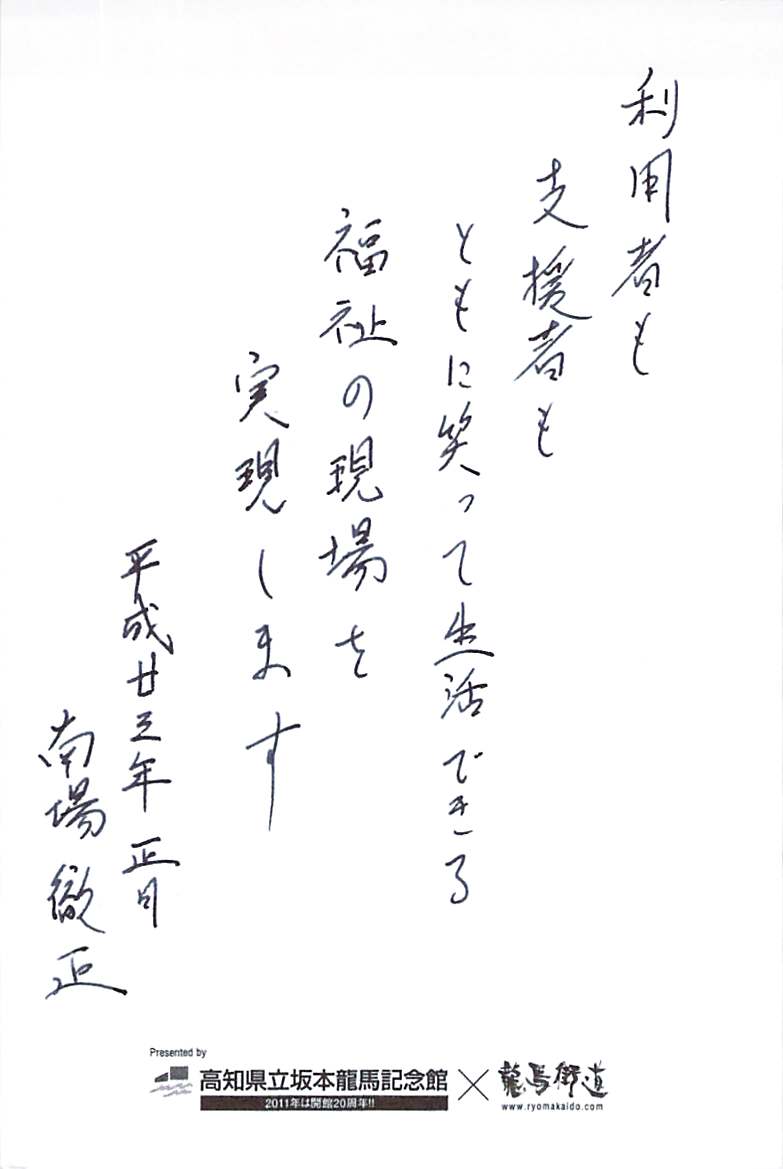 利用者も
支援者も
ともに笑って生活できる
福祉の現場を
実現します
平成廿三年 正月
南場徹正
Presented by
高知県立坂本龍馬記念館×龍馬街道
2011年は開館20周年!!
www.ryomakaido.com